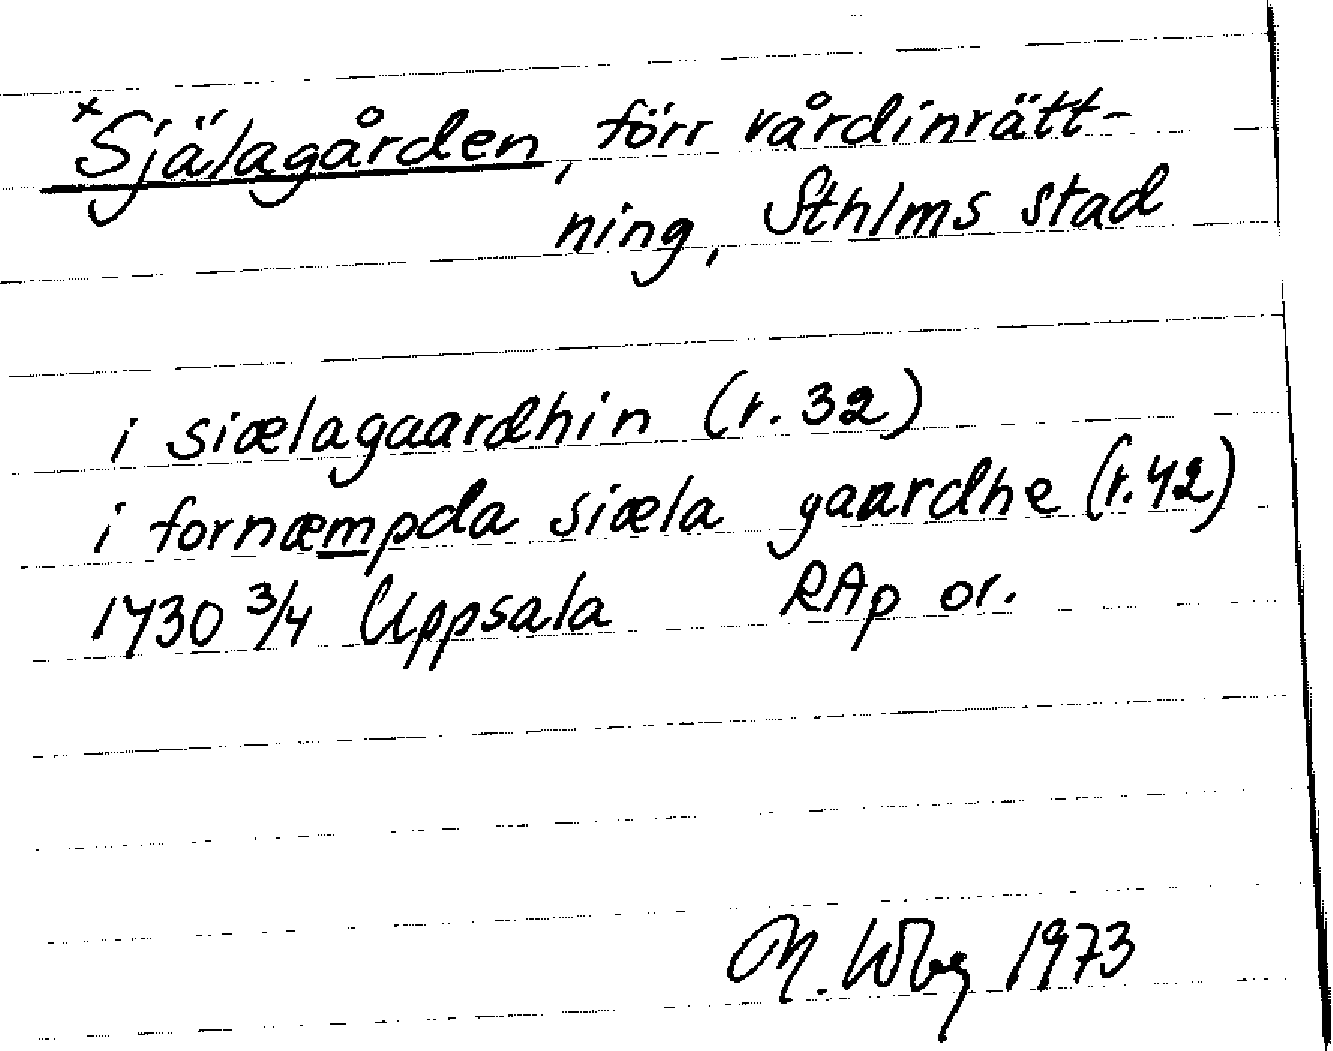 ×Själagården, förr vårdinrätt-
ning, Sthlms stad
i siælagaardhin (r. 32)
i fornæmpda siæla gaardhe (r. 42)
1430 3/4 Uppsala RAp or.
1973